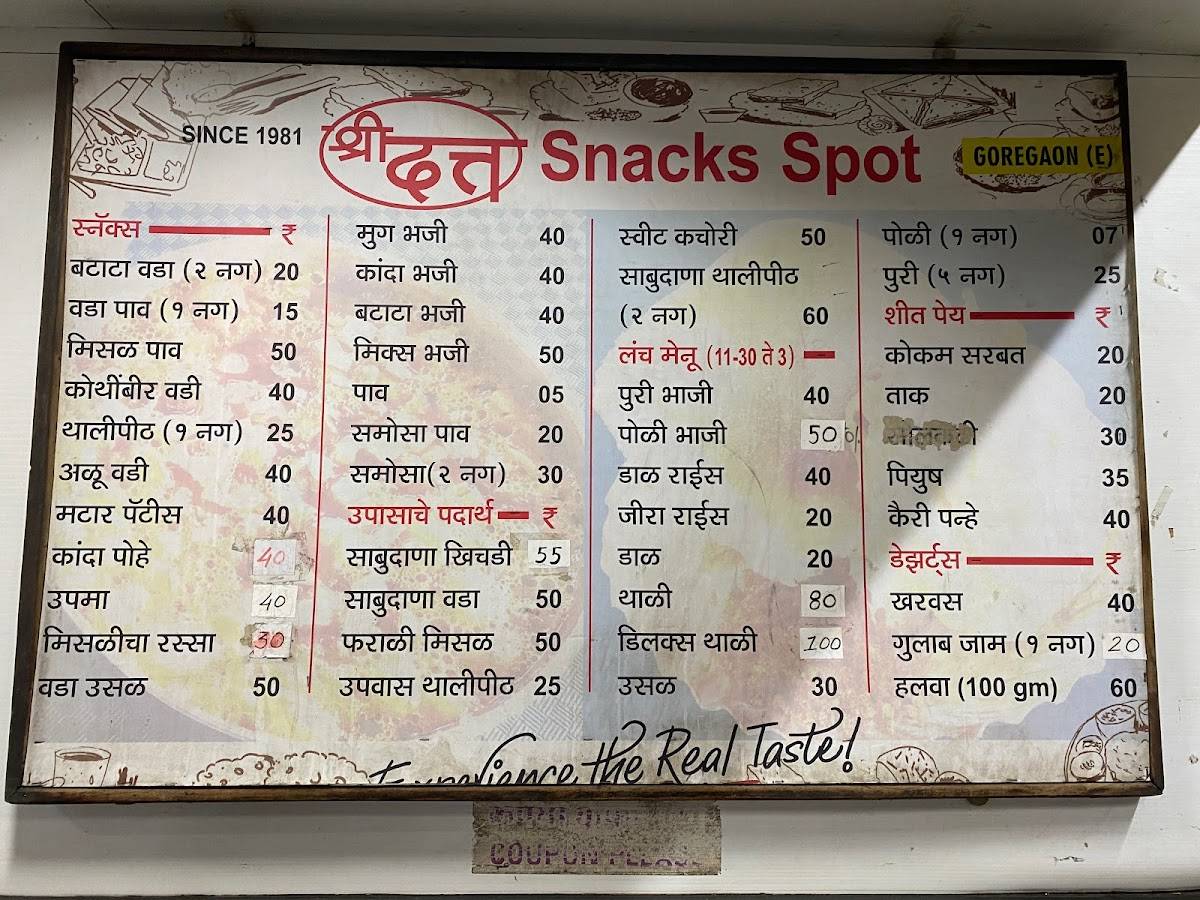 SINCE 1981
श्री दत्त Snacks Spot
GOREGAON (E)
स्नॅक्स ₹
बटाटा वडा (२ नग) 20
वडा पाव (१ नग) 15
मिसळ पाव 50
कोथींबीर वडी 40
थालीपीठ (१ नग) 25
अळू वडी 40
मटार पॅटीस 40
कांदा पोहे 40
उपमा 40
मिसळीचा रस्सा 30
वडा उसळ 50
मुग भजी 40
कांदा भजी 40
बटाटा भजी 40
मिक्स भजी 50
पाव 05
समोसा पाव 20
समोसा(२ नग) 30
उपासाचे पदार्थ ₹
साबुदाणा खिचडी 55
साबुदाणा वडा 50
फराळी मिसळ 50
उपवास थालीपीठ 25
स्वीट कचोरी 50
साबुदाणा थालीपीठ
(२ नग) 60
लंच मेनू (11-30 ते 3)
पुरी भाजी 40
पोळी भाजी 50
डाळ राईस 40
जीरा राईस 20
डाळ 20
थाळी 80
डिलक्स थाळी 100
उसळ 30
पोळी (१ नग) 07
पुरी (५ नग) 25
शीत पेय ₹
कोकम सरबत 20
ताक 20
30
पियुष 35
कैरी पन्हे 40
डेझर्ट्स ₹
खरवस 40
गुलाब जाम (१ नग) 20
हलवा (100 gm) 60
Experience the Real Taste!
COUPON PLEASE